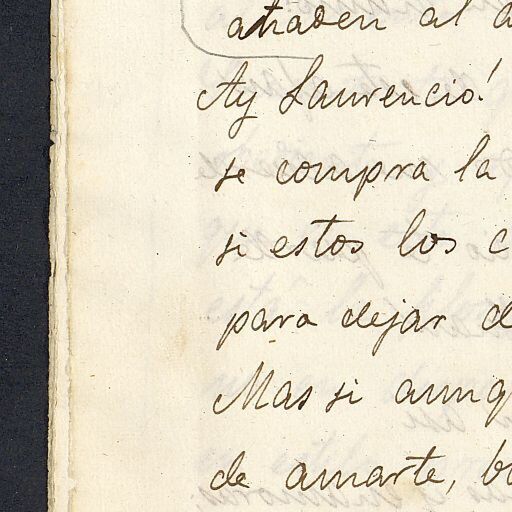 añaden al
Ay Laurencio!
se compra la
si estos los c
para dejar d
Mas si aunq
de amarte, b